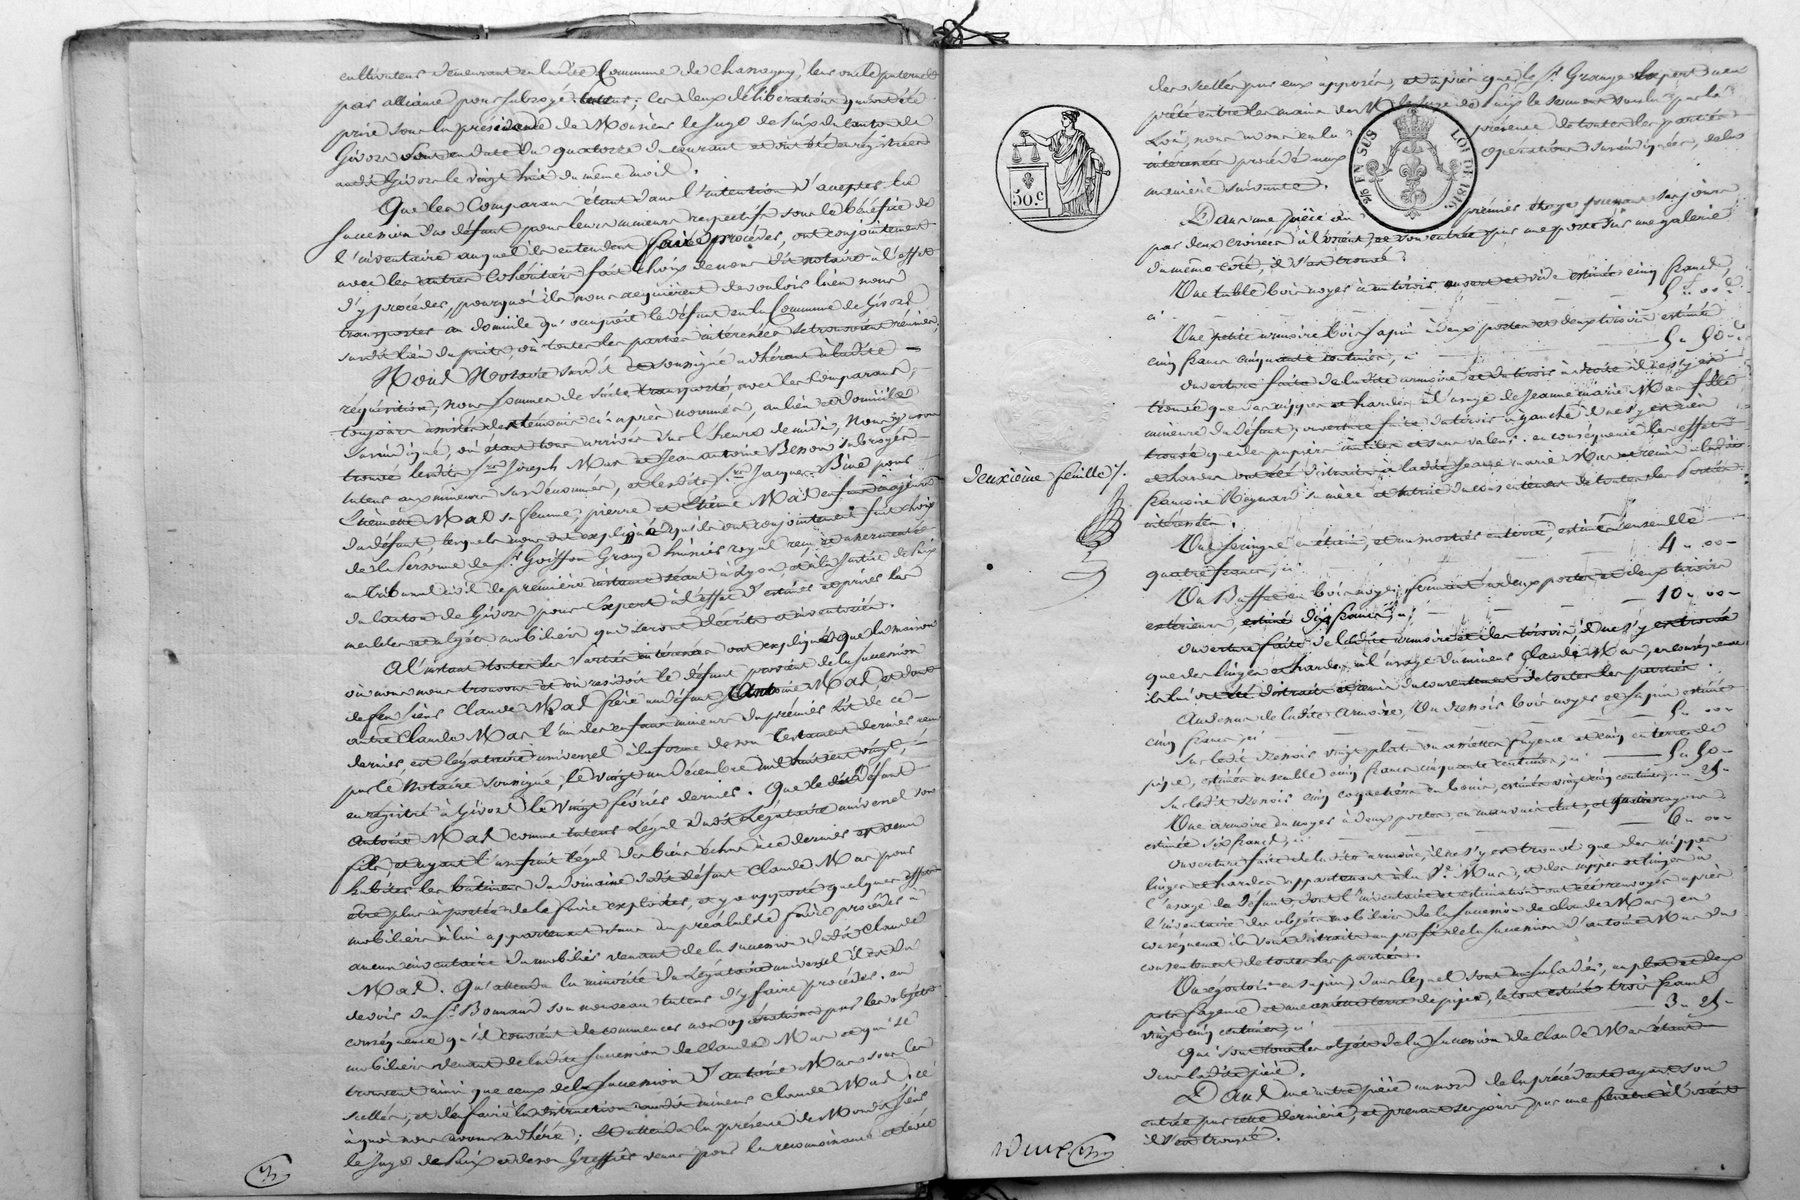 cultivateurs demeurant en ladite Commune de Chassagny, leur oncle paternel
par alliance pour subrogé tuteur; les deux délibérations qui ont été
prise sous la présidence de Monsieur le Juge de Paix du Canton de
Givors sont en date du quatorze du courant et ont été enregistrées
audit Givors le vingt huit du même mois.
Que les Comparans étant dans l'intention d'accepter la
succession du défunt pour leurs mineurs respectifs sous le bénéfice de
l'inventaire auquel ils entendent faire procéder, ont conjointement
avec les autres Cohéritiers fait choix de nous dit notaire à l'effet
d'y procéder, pourquoi ils nous requièrent de vouloir bien nous
transporter au domicile qu'occupoit le défunt en la Commune de Givors
susdit lieu du puits, où toutes les parties intéressées se trouvoient réunies,
Nous Notaire susdit et soussigné adhérant à ladite
réquisition, nous sommes de suite transporté, avec les Comparans,
toujours assisté des témoins ci après nommés, au lieu et domicile
susindiqué, où étant tous arrivés sur l'heure de midi, Nous y avons
trouvé lesdits Srs Joseph Mas et Jean Antoine Besson subrogés
tuteurs aux mineurs susdénommés, et lesdits Srs Jacques Bine pour
Etiennette Mas sa femme, pierre et Etienne Mas enfans majeurs
du défunt, lesquels nous ont expliqué qu'ils ont conjointement fait choix
de la Personne de Sr Grange huissier royal reçu et assermenté
au Tribunal civil de première instance séant à Lyon, et à la Justice de Paix
du canton de Givors pour Expert à l'effet d'estimer et priser les
meubles et objets mobiliers qui seront décrits et inventoriés.
A l'instant toutes les Parties intéressées ont expliqué que la maison
où nous nous trouvons et où résidoit le défunt provient de la succession
de feu Sieur Claude Mas frère au défunt Antoine Mas et dont
autre Claude Mas l'un des enfans mineurs du premier lit de ce
dernier est légataire universel en la forme de son testament dernier reçu
par le Notaire soussigné, le vingt un Décembre mil huit cent vingt,
enregistré à Givors le Vingt février dernier. Que le dit Défunt
Antoine Mas comme tuteur légal dudit Légataire universel son
fils, et ayant l'usufruit légal des biens échus à ce dernier est venu
habiter les bâtimens du domaine dudit défunt Claude Mas pour
être plus à portée de le faire exploiter, et y a apporté quelques effets
mobiliers à lui appartenant sans au préalable faire procéder à
aucun inventaire du mobilier venant de la succession dudit Claude
Mas. Qu'attendu la minorité du Légataire universel il est du
devoir du Sr Bonnand son nouveau tuteur d'y faire procéder. en
conséquence qu'il convient de commencer nos opérations par les objets
mobiliers venant de ladite succession de Claude Mas et qui se
trouvent ainsi que ceux de la succession d'antoine Mas sous les
scellés, et d'en faire la distraction audit mineur Claude Mas; ce
à quoi nous avons adhéré; Et attendu la présence de Mondit Sieur
le Juge de Paix et de son Greffier venus pour la reconnoissance et levée
des scellés par eux apposés, et après que le Sr Grange Expert a eu
prêté entre les mains de M. le Juge de Paix le serment voulu par la
Loi, nous avons en la présence de toutes les parties
intéressées procédé aux opérations susindiquées, de la
manière suivante.
Dans une pièce au premier étage prenant ses jours
par deux croisées à l'orient, et son entrée par une porte sur une galerie
du même côté, il s'est trouvé;
Une table bois noyer à un tiroir ouvert et vide estimée cinq francs,
ci 5. 00.
Une petite armoire bois sapin à deux portes et deux tiroirs estimée
cinq francs cinquante centimes, ci 5. 50.
ouverture faite de ladite armoire et du tiroir à droite il ne s'y est
trouvé que des nippes et hardes à l'usage de Jeanne marie Mas fille
mineure du défunt; ouverture faite du tiroir à gauche il ne s'y est rien
trouvé que des papiers inutiles et sans valeur. en conséquence les effets
et hardes ont été distraits à ladite Jeanne marie Mas et remis à ladite
françoise Reynard sa mère et tutrice du consentement de toutes les Parties
intéressées.
Une seringue en étain, et un mortier en terre, estimés ensemble
quatre francs, ci 4. 00
Un Buffet en bois noyer fermant à deux portes et deux tiroirs
extérieurs, estimé dix francs, ci 10. 00
ouverture faite de ladite armoire et des tiroirs, il ne s'y est trouvé
que des linges et hardes à l'usage du mineur Claude Mas, en conséquence
ils lui ont été distraits et remis du consentement de toutes les parties.
Au dessus de ladite Armoire, Un dressoir bois noyer et sapin estimé
cinq francs, ci 5. 00
Sur ledit dressoir vingt plats ou assiettes fayence et cinq en terre de
pipe, estimés ensemble cinq francs cinquante centimes, ci 5. 50
Sur ledit dressoir cinq coquetiers en bois, estimés vingt cinq centimes, ci 25
Une armoire du noyer à deux portes en mauvais état, et quatre rayons
estimée six francs, ci 6. 00
Ouverture faite de ladite armoire, il ne s'y est trouvé que des nippes
linges et hardes appartenant à la Ve Mas, et des nippes et linges à
l'usage du Défunt, dont l'inventaire et estimation ont été renvoyés après
l'inventaire des objets mobiliers de la succession de Claude Mas, en
conséquence ils sont distraits au profit de la succession d'antoine Mas du
consentement de toutes les parties.
Un égoutoir en sapin, dans lequel sont un saladier, un plat et deux
pots fayence et une assiette terre de pipe, le tout estimés trois francs
vingt cinq centimes, ci 3. 25
Qui sont tous les objets de la succession de Claude Mas étant
dans ladite pièce.
Dans une autre pièce au nord de la précédente ayant son
entrée par cette dernière, et prenant ses jours par une fenêtre à l'orient
il s'est trouvé.
50.c
5/6 EN SUS
LOI DE 1816.
deuxième feuille